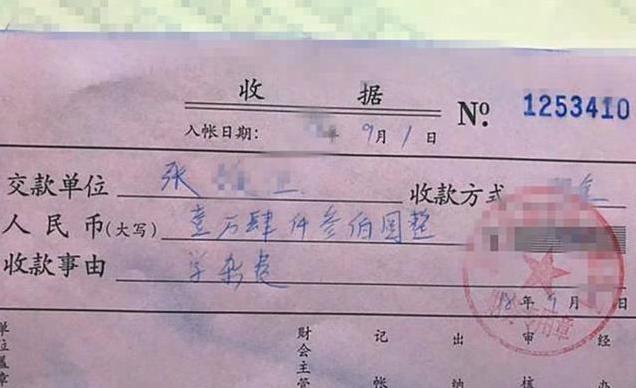 收 据 Nº 1253410
入帐日期: 年 9 月 1 日
交款单位 张 收款方式
人民币(大写) 壹万肆仟参佰圆整
收款事由 学杂费
18年 9月 日
财会主管 记帐 出纳 审核 经办
单位盖章